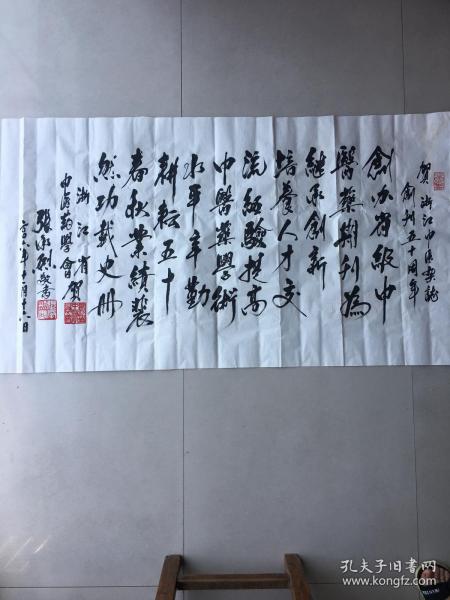 贺浙江中医杂志
创刊五十周年
創办省級中
醫藥期刊為
継承創新
培養人才交
流經驗提高
中醫藥學術
水平辛勤
耕耘五十
春秋業績裴
然功載史册
浙江省
中医药學會賀
张承烈敬書
二〇〇六年十一月十六日
孔夫子旧书网
www.kongfz.com